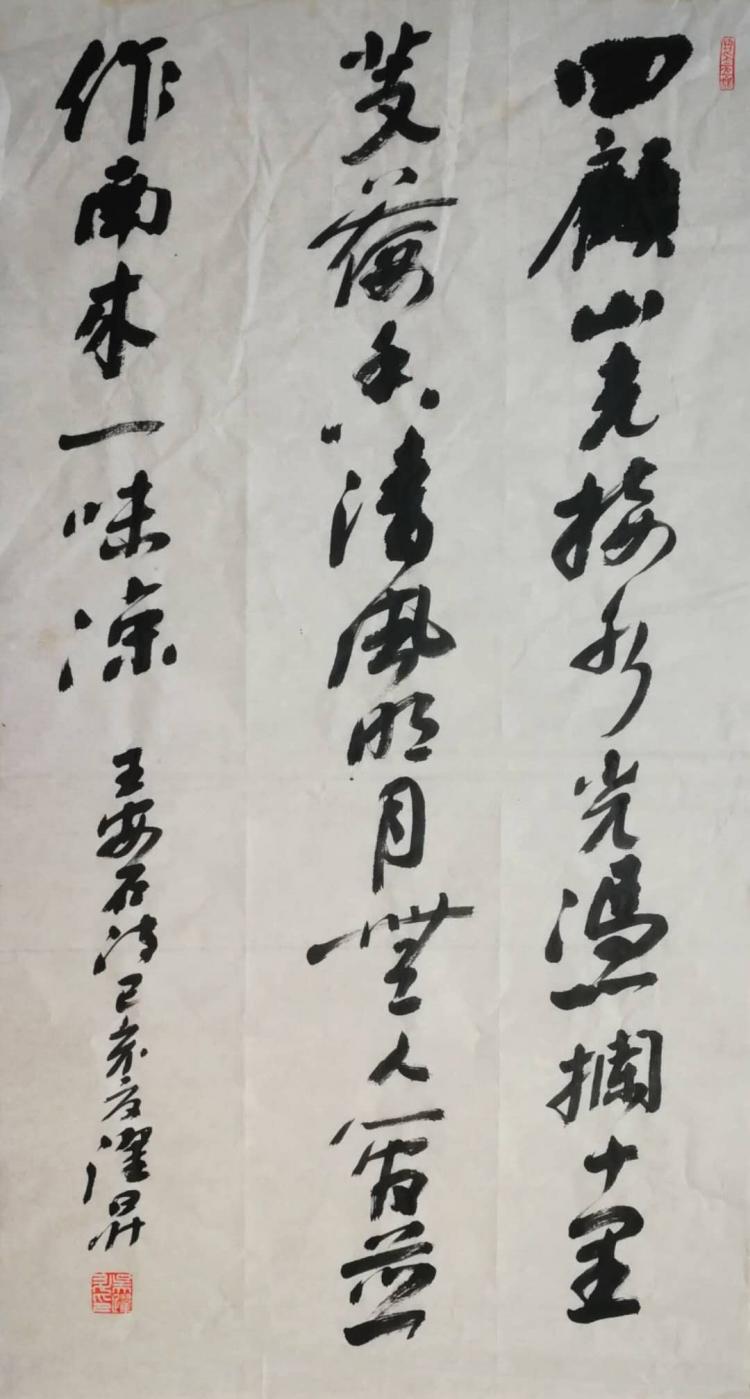 四顧山光接水光憑攔十里
芰荷香清風明月無人管並
作南來一味涼
王安石詩己亥夏濯昇